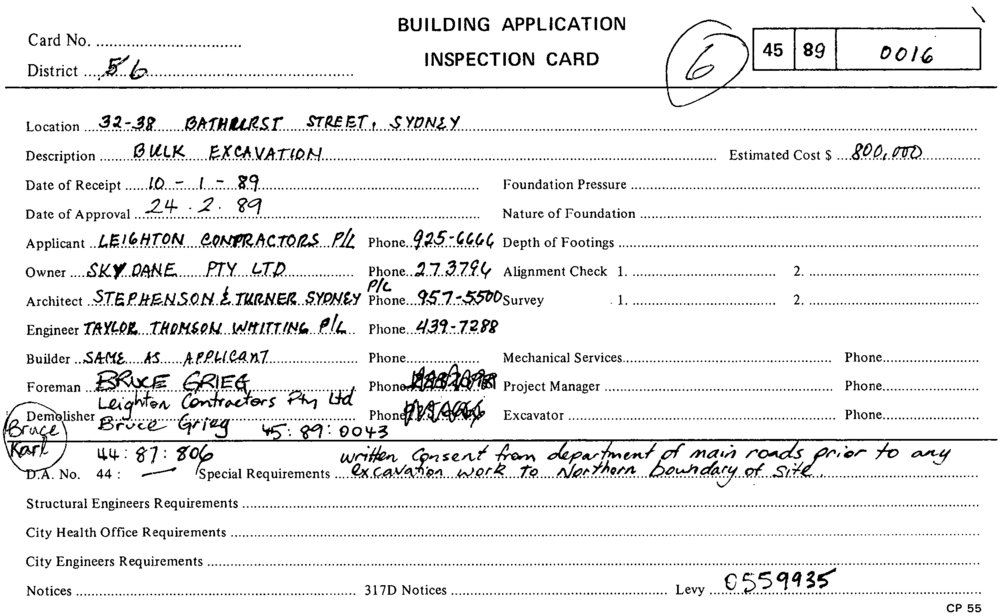 BUILDING APPLICATION
INSPECTION CARD
Card No.
District 56
6
45 89 0016
Location 32-38 BATHURST STREET, SYDNEY
Description BULK EXCAVATION Estimated Cost $ 800,000
Date of Receipt 10 - 1 - 89 Foundation Pressure
Date of Approval 24 . 2 . 89 Nature of Foundation
Applicant LEIGHTON CONTRACTORS P/L Phone 925-6666 Depth of Footings
Owner SKYDANE PTY LTD Phone 273794 Alignment Check 1. 2.
Architect STEPHENSON & TURNER SYDNEY P/L Phone 957-5500 Survey 1. 2.
Engineer TAYLOR THOMSON WHITTING P/L Phone 439-7288
Builder SAME AS APPLICANT Phone Mechanical Services Phone
Foreman BRUCE GRIEG Phone Project Manager Phone
Leighton Contractors Pty Ltd
Demolisher Bruce Grieg 45:89:0043 Phone Excavator Phone
Bruce
Karl
44:87:806
D.A. No. 44 : — Special Requirements written consent from department of main roads prior to any
excavation work to Northern boundary of site.
Structural Engineers Requirements
City Health Office Requirements
City Engineers Requirements
Notices 317D Notices Levy 0559935
CP 55